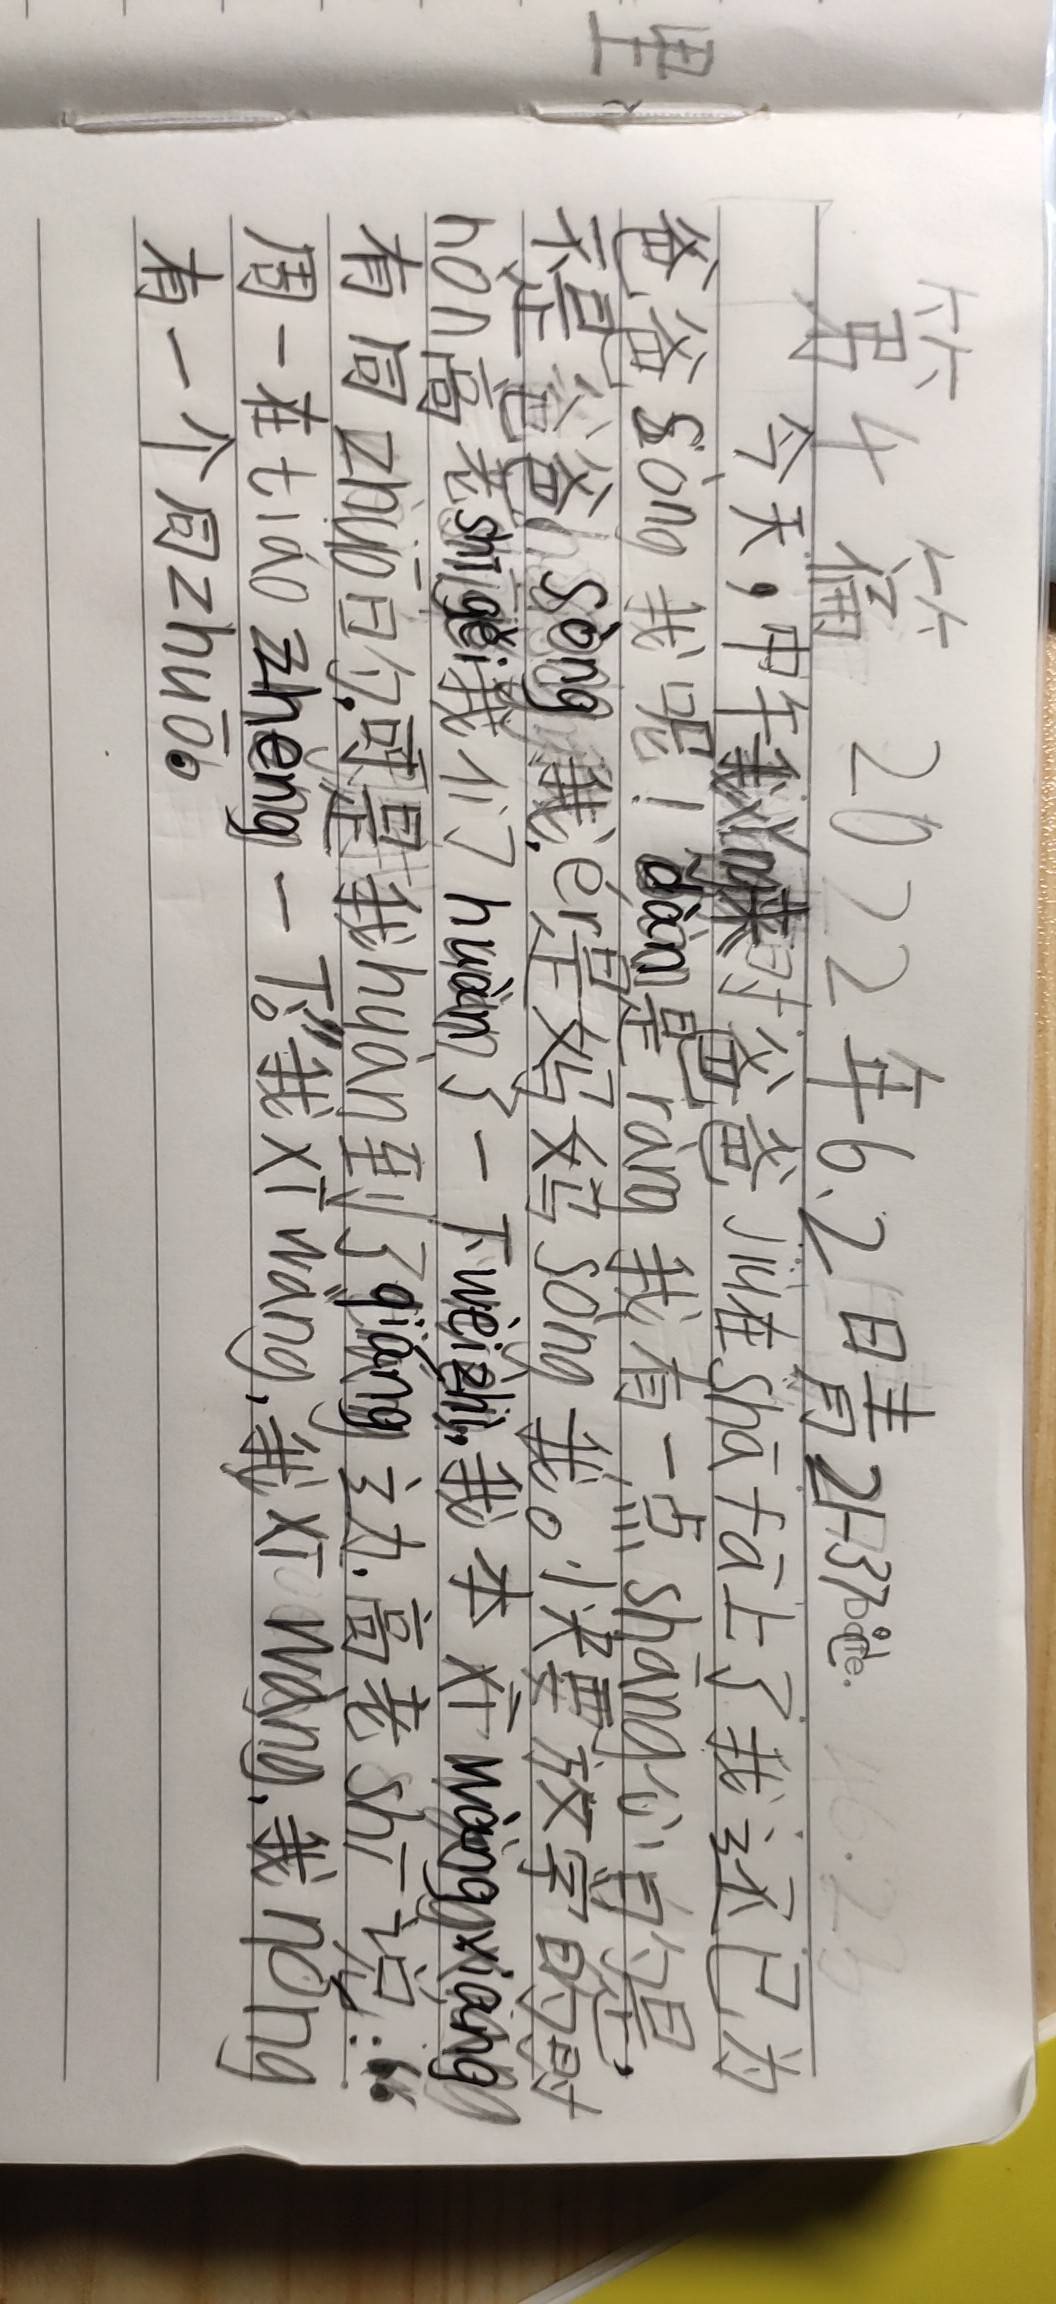 里
第4篇 2022年6.21日 青 21-37℃
Date.
今天，中午我来时爸爸叫在shā fā上了我还已为
爸爸sòng我呢！dàn是爸ràng我有一点shāng心,自的是
不是爸爸sòng我,ér是妈妈sòng我。快要放学的时
hòn高老shī gěi我们huàn了一下wèi zhì,我本xī wàng xiǎng
有同zhuō日勺,可是我huàn到了qiáng边.高老shī说:“
周一在tiáo zhěng一下。”我xī wàng,我xī wàng,我néng
有一个同zhuō。